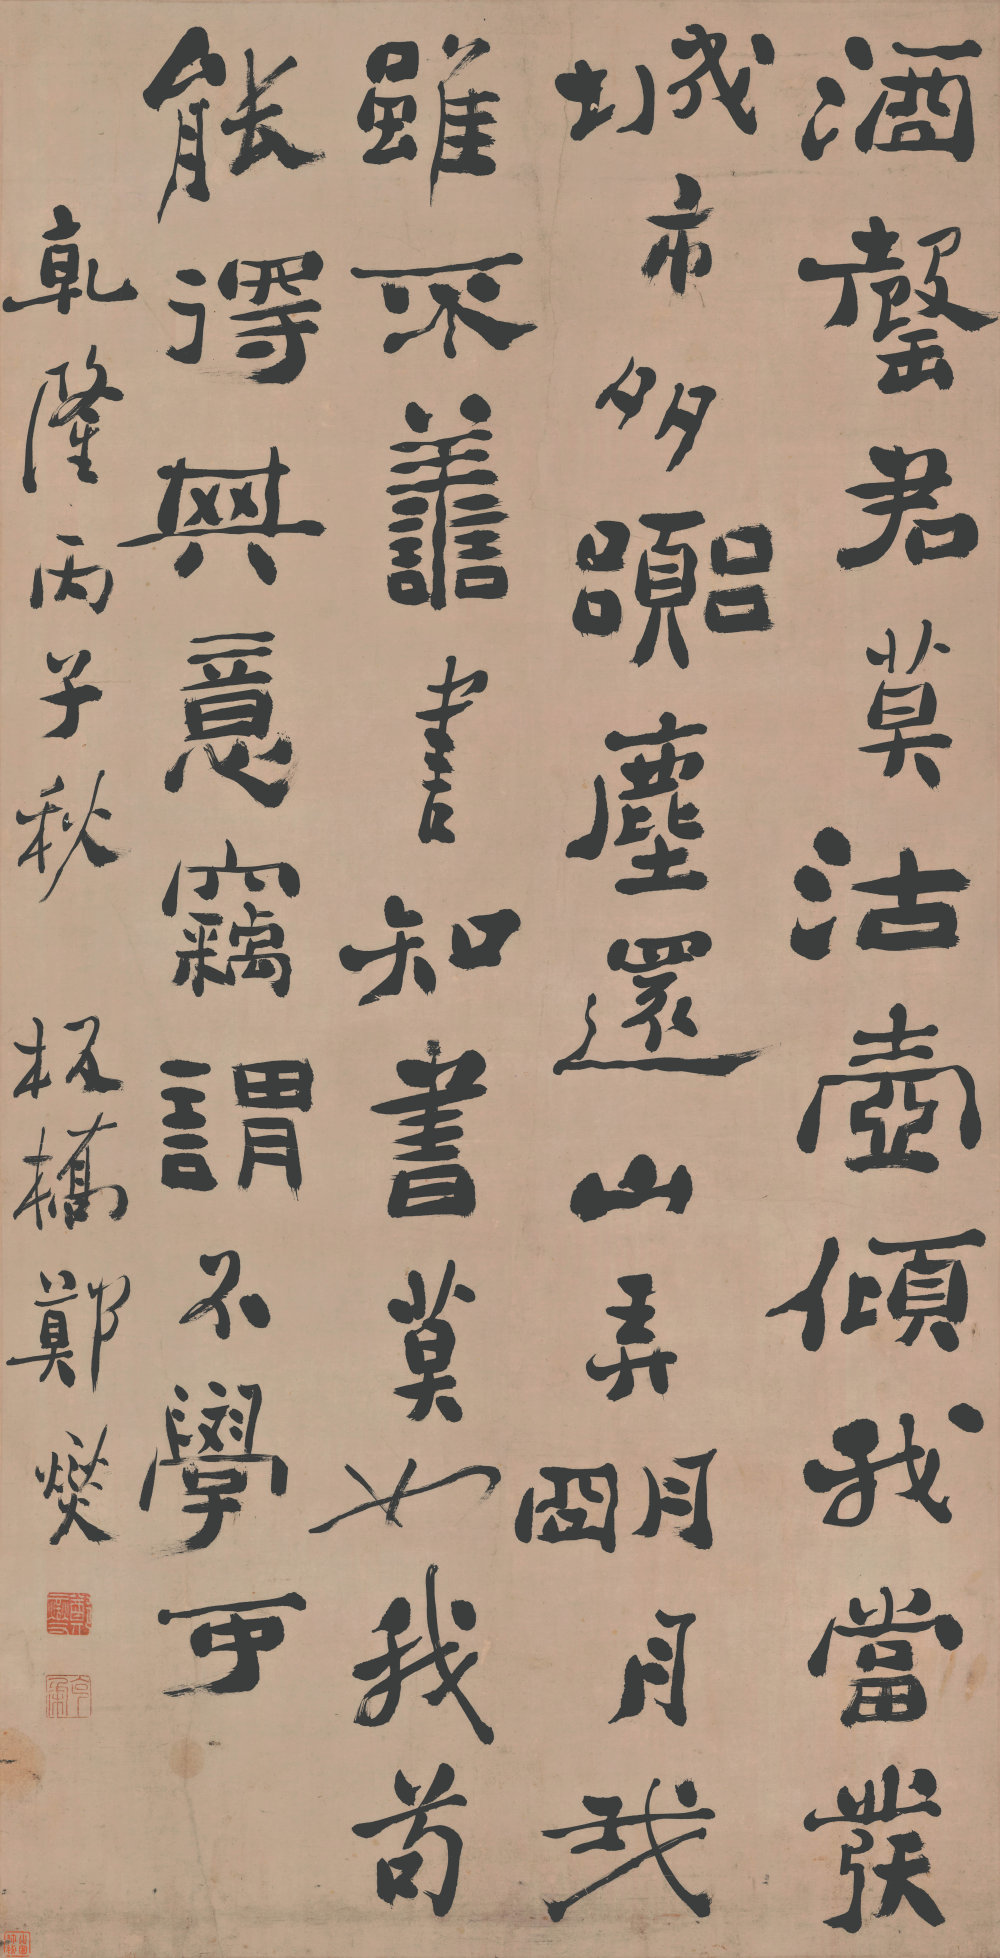 酒罄君莫沽壺傾我當發
城市多囂塵還山弄朙月我
雖不譱書知書莫如我苟
能得其意竊謂不學可
乾隆丙子秋 板橋鄭燮